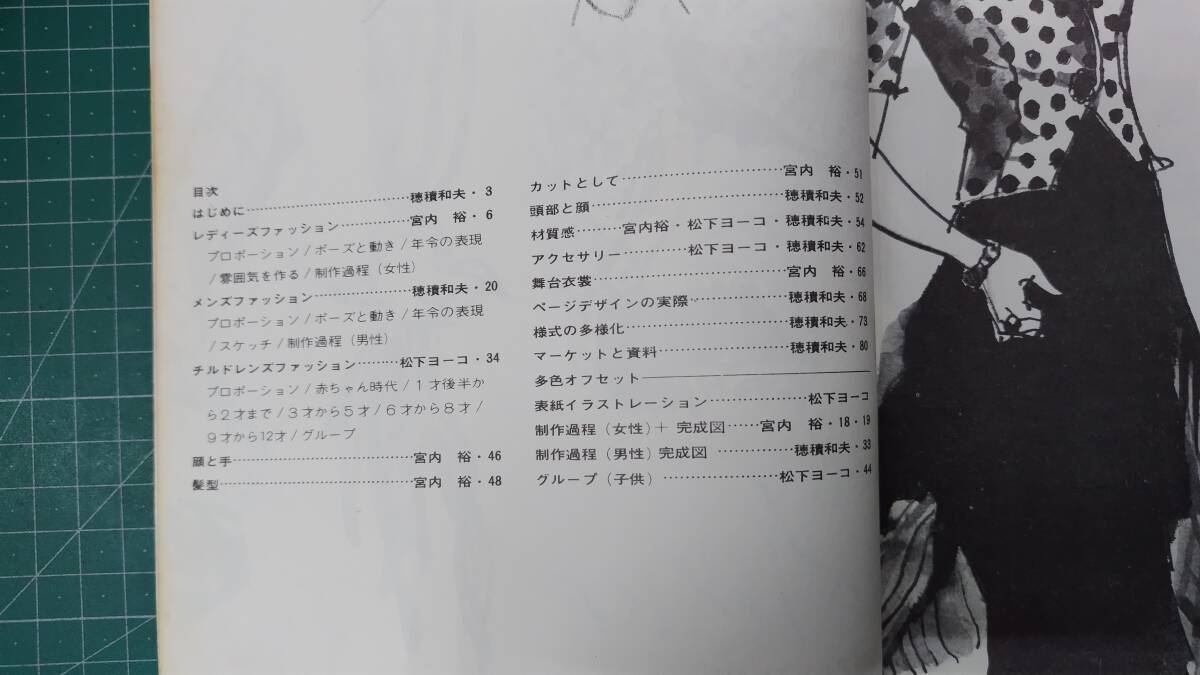 目次
はじめに……………………………穂積和夫・3
レディーズファッション……………宮内 裕・6
プロポーション/ポーズと動き/年令の表現
/雰囲気を作る/制作過程(女性)
メンズファッション…………………穂積和夫・20
プロポーション/ポーズと動き/年令の表現
/スケッチ/制作過程(男性)
チルドレンズファッション………松下ヨーコ・34
プロポーション/赤ちゃん時代/1才後半か
ら2才まで/3才から5才/6才から8才/
9才から12才/グループ
顔と手………………………………宮内 裕・46
髪型…………………………………宮内 裕・48
カットとして…………………………宮内 裕・51
頭部と顔……………………………穂積和夫・52
材質感………宮内裕・松下ヨーコ・穂積和夫・54
アクセサリー…………松下ヨーコ・穂積和夫・62
舞台衣裳……………………………宮内 裕・66
ページデザインの実際………………穂積和夫・68
様式の多様化………………………穂積和夫・73
マーケットと資料……………………穂積和夫・80
多色オフセット――――――――――
表紙イラストレーション………………松下ヨーコ
制作過程(女性)+ 完成図……宮内 裕・18・19
制作過程(男性)完成図 ……………穂積和夫・33
グループ(子供)…………………松下ヨーコ・44